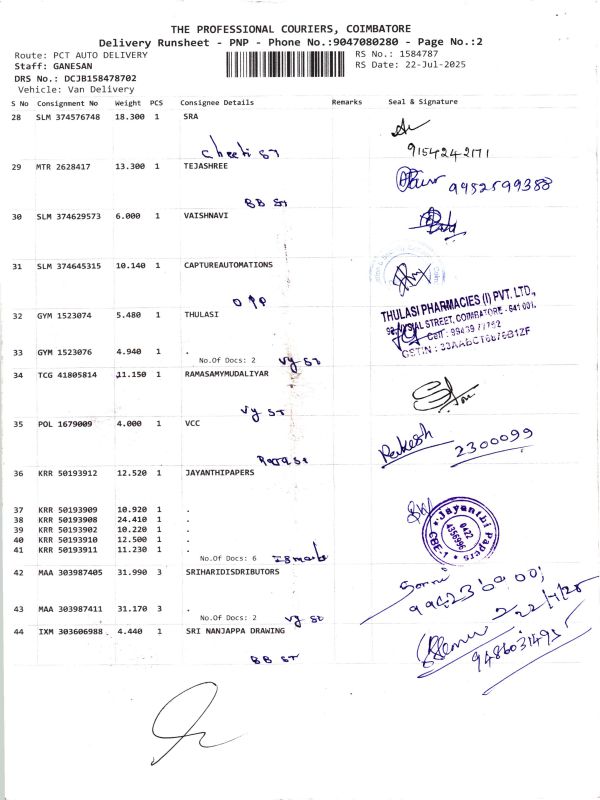 THE PROFESSIONAL COURIERS, COIMBATORE
Delivery Runsheet - PNP - Phone No.:9047080280 - Page No.:2
Route: PCT AUTO DELIVERY
RS No.: 1584787
Staff: GANESAN
RS Date: 22-Jul-2025
DRS No.: DCJB158478702
Vehicle: Van Delivery
S No Consignment No Weight PCS Consignee Details Remarks Seal & Signature
28 SLM 374576748 18.300 1 SRA
Cheeti ST
9154242171
29 MTR 2628417 13.300 1 TEJASHREE
9452599388
BB St
30 SLM 374629573 6.000 1 VAISHNAVI
31 SLM 374645315 10.140 1 CAPTUREAUTOMATIONS
OPP
32 GYM 1523074 5.480 1 THULASI
THULASI PHARMACIES (I) PVT. LTD.,
STREET, COIMBATORE - 641 001.
Cell : 99439 77762
33 GYM 1523076 4.940 1 .
No.Of Docs: 2 VY ST
34 TCG 41805814 11.150 1 RAMASAMYMUDALIYAR
VY ST
35 POL 1679009 4.000 1 VCC
Rakesh 2300099
36 KRR 50193912 12.520 1 JAYANTHIPAPERS
37 KRR 50193909 10.920 1 .
38 KRR 50193908 24.410 1 .
39 KRR 50193902 10.220 1 .
40 KRR 50193910 12.500 1 .
41 KRR 50193911 11.230 1 .
No.Of Docs: 6
Jayanthi Papers
0422
4356996
CBE-1
42 MAA 303987405 31.990 3 SRIHARIDISDRIBUTORS
43 MAA 303987411 31.170 3 .
No.Of Docs: 2 VY St
44 IXM 303606988 4.440 1 SRI NANJAPPA DRAWING
9486031495
BB ST